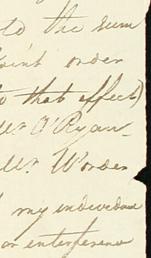 to the sum
joint order
to that effect)
Mr. O'Ryan
Mr. Worden
my individual
or interference